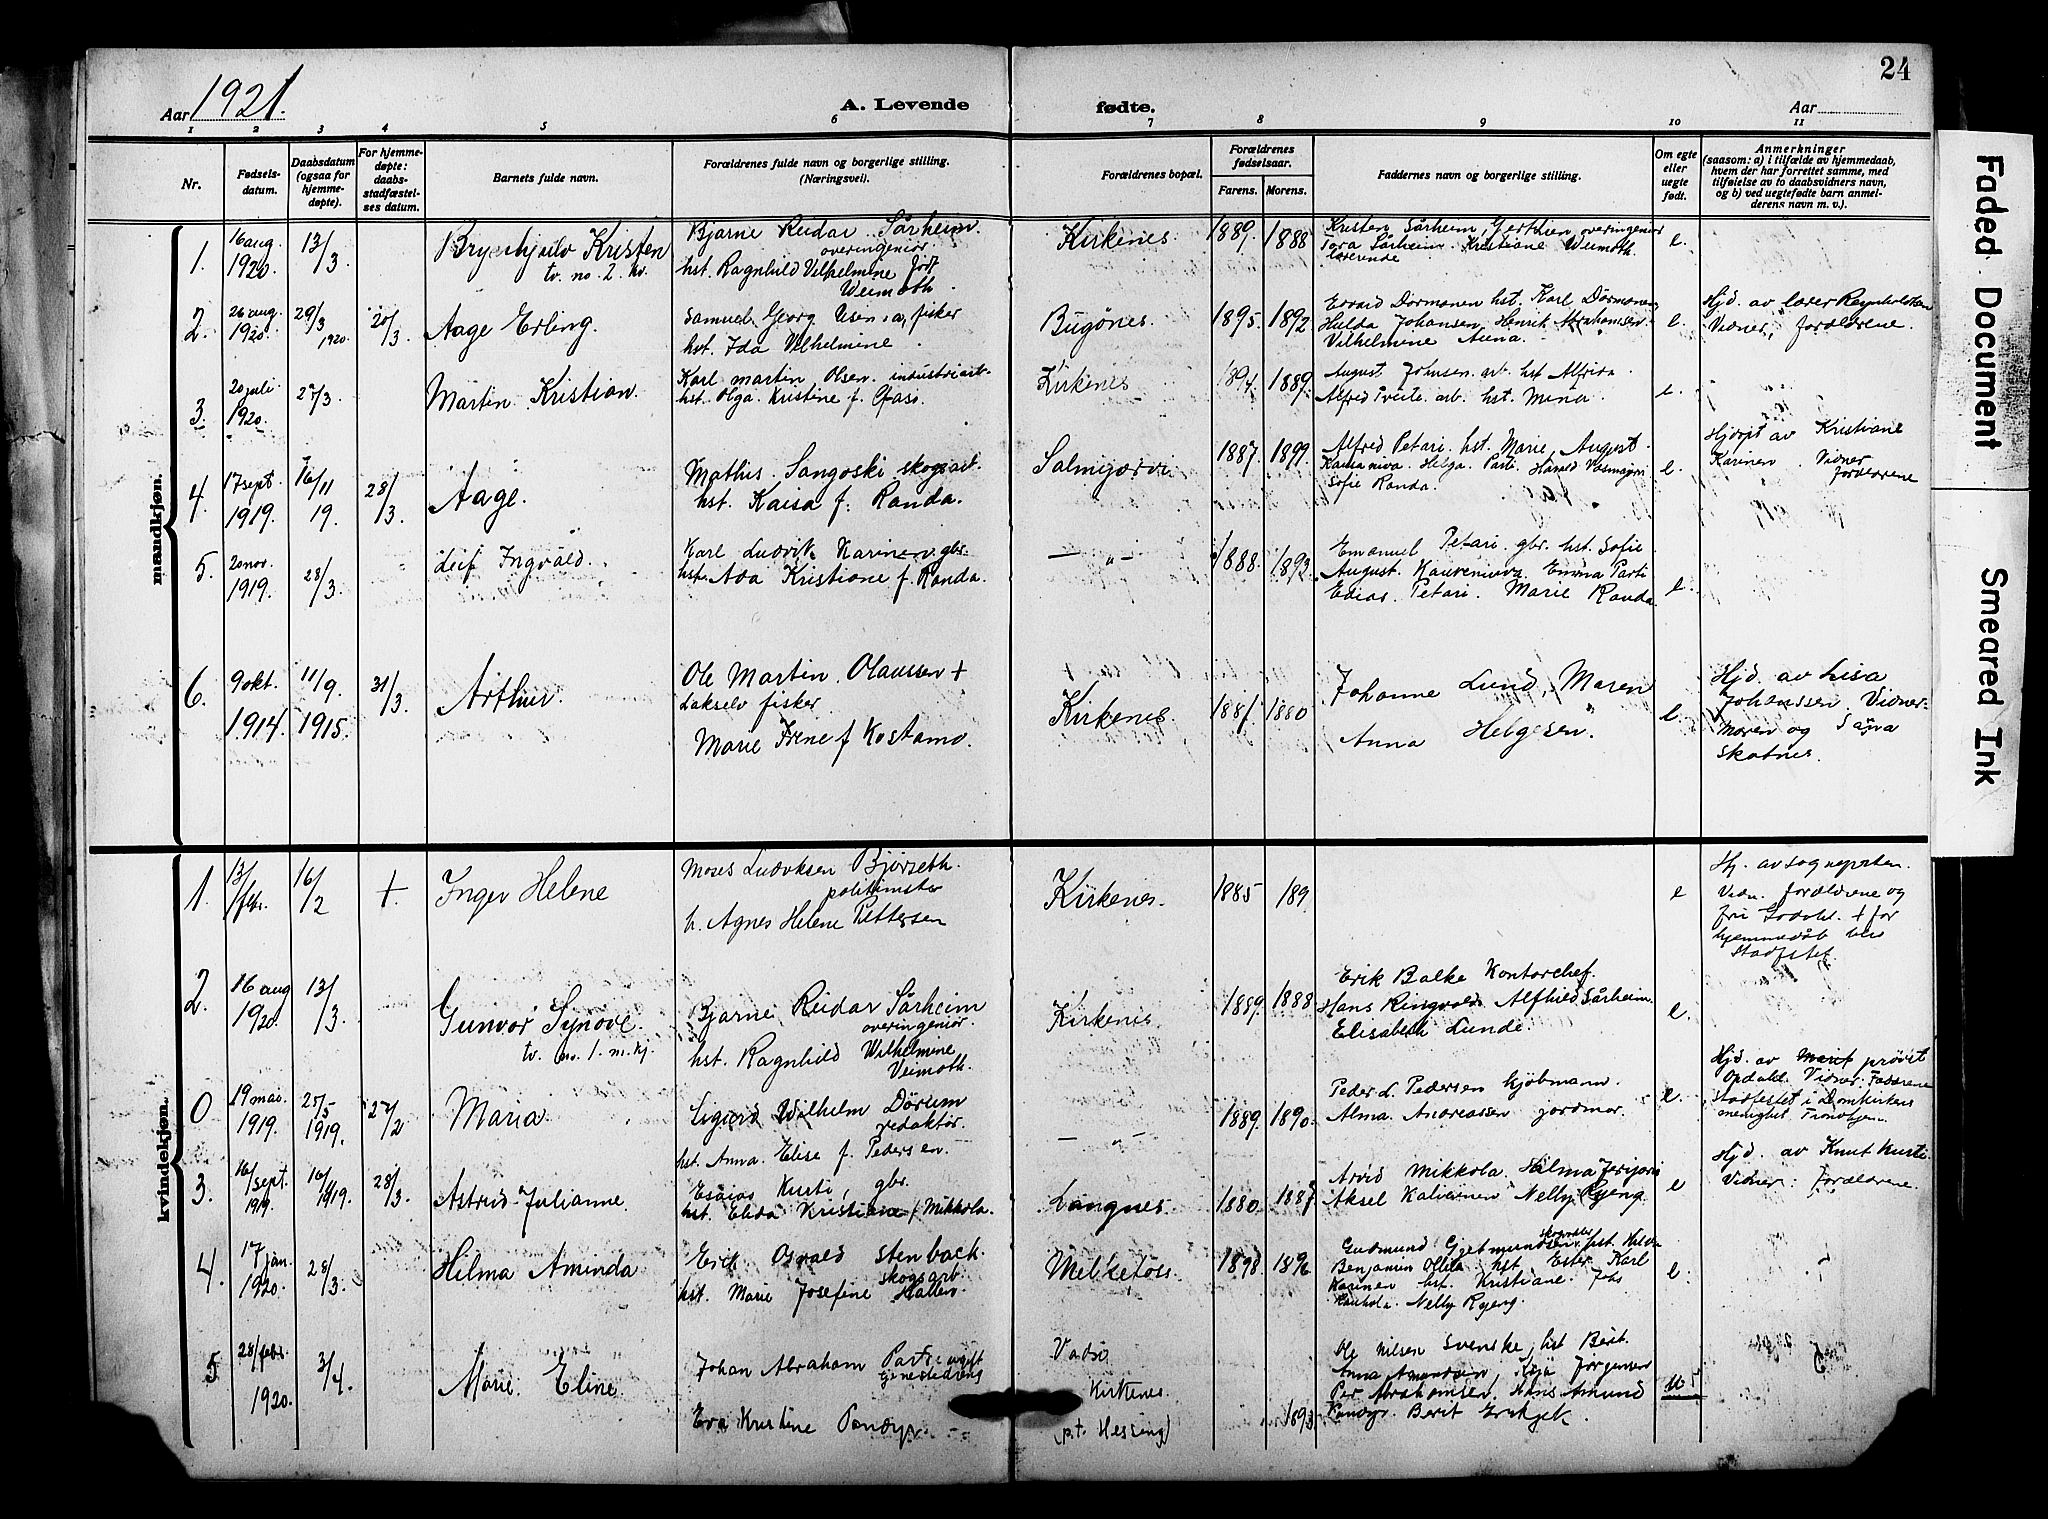 24
Aar 1921.
A. Levende fødte.
Aar
1 2 3 4 5 6 7 8 9 10 11
Nr.
Fødselsdatum.
Daabsdatum (ogsaa for hjemmedøpte).
For hjemmedøpte: daabsstadfæstelses datum.
Barnets fulde navn.
Forældrenes fulde navn og borgerlige stilling. (Næringsvei).
Forældrenes bopæl.
Forældrenes fødselsaar.
Farens. Morens.
Faddernes navn og borgerlige stilling.
Om egte eller uegte født.
Anmerkninger
(saasom: a) i tilfælde av hjemmedaab, hvem der har forrettet samme, med tilføielse av to daabsvidners navn, og b) ved uegtefødte barn anmelderens navn m. v.).
mandkjøn.
1. 16 aug. 1920. 13/3. Kristen
tv. no. 2. kv.
Bjarne Reidar Sårheim
overingeniør
hst. Ragnhild Vilhelmine født
Weimoth.
Kirkenes 1889. 1888
Kristen Sårheim, overingeniør
Tora Sårheim. Kristiane Weimoth.
lærerinde
e.
2. 26 aug. 1920. 29/3 1920. 20/3 Aage Erling.
Samuel Georg fisker
hst. Ida Vilhelmine
Bugönes. 1895. 1892
hst. Karl
Hulda Johansen, Henrik Abrahamsen
Vilhelmine Anna.
e
Hjd. av lærer
Vidner, forældrene.
3. 20 juli 1920. 27/3. Martin Kristian.
Karl Martin Olsen. industriarb.
hst. Olga Kristine f.
Kirkenes 1894. 1889.
August Johnsen. arb. hst Alfrida
Alfred Tveite. arb. hst. Mina.
e.
4. 17 sept. 1919. 16/11 19. 28/3. Aage.
Mathis Sangoski skogsarb.
hst. Kaisa f. Randa.
Salmijærvi 1887. 1899.
Alfred Petari. hst. Marie. August
Sofie Randa.
e.
Hjdøpt av Kristiane
Karinen. Vidner
forældrene
5. 20 nov. 1919. 28/3. Leif Ingvald.
Karl Ludvik Karinen gbr.
hst. Ada Kristiane f. Randa.
— „ — 1888. 1893.
Emanuel Petari. gbr. hst. Sofie
August Emma Parti
Petari. Marie Randa.
e.
6. 9 okt. 1914. 11/9. 1915. 31/3. Arthur.
Ole Martin Olaussen +
Lakselv fisker
Marie Irene f Kostamo.
Kirkenes. 1881. 1880
Johanne Lund, Maren
Anna Helgesen.
e.
Hjd. av Lisa
Johanssen Vidner.
Moren og
Skotnes.
kvindekjøn.
1. 13/febr. 16/2 + Inger Helene
Moses Ludvksen Bjørseth.
politimster
h. Agnes Helene Pettersen
Kirkenes. 1885 189
e
Hj. av sogneprsten.
Vidn. forældrene og
+ for
hjemmedåb blev
Stadfstet.
2. 16 aug 1920. 13/3. Gunvor Synöve.
tv. no. 1. m. kj.
Bjarne Reidar Sårheim
overingeniør.
hst. Ragnhild Wilhelmine
Veimoth.
Kirkenes. 1889. 1888
Erik Balke Kontorchef.
Hans Ringvold Alfhild Sårheim.
Elisabeth Lunde.
e.
0 19 mai 1919. 25/5 1919. 27/2 Maria.
Sigurd Wilhelm Dörum
redaktör.
hst. Anna Elise f. Pedersen.
— „ — 1889. 1890.
Peder L. Pedersen kjöbmann.
Alma Andreassen jordmor.
e.
Hjd. av prövst
Opdahl. Vidner. Faddrene
Stadfestet i Domkirkens
menighet Trondhjem.
3. 16/sept. 1919. 16/11 1919. 28/3. Astrid Julianne.
Esaias Kusti, gbr.
hst. Elida Kristiane f Mikkola.
Langnes. 1880. 1887
Arvid Mikkola. Hilma
Aksel Nelly Ryeng.
e
Hjd. av Knut
Vidner: Forældrene.
4. 17 jan. 1920. 28/3. Hilma Aminda
Erik Osvald Stenback.
skogsarb
hst. Marie Josefine
1898. 1896
Gudmund hst.
Benjamin hst Ester Karl
Karinen hst. Kristiane.
Nelly Ryeng.
e.
5 28/febr. 1920. 3/4. Marie Eline.
Johan Abraham ugift
Eva Kristine
Vadsö
Kirkenes.
(p.t. Hessing)
1893
Ole Nilsen Svenske, hst Berit.
Anna Amundsen, Jörgensen
Per Abrahamsen, Hans Amund
Berit
u
Faded Document
Smeared Ink